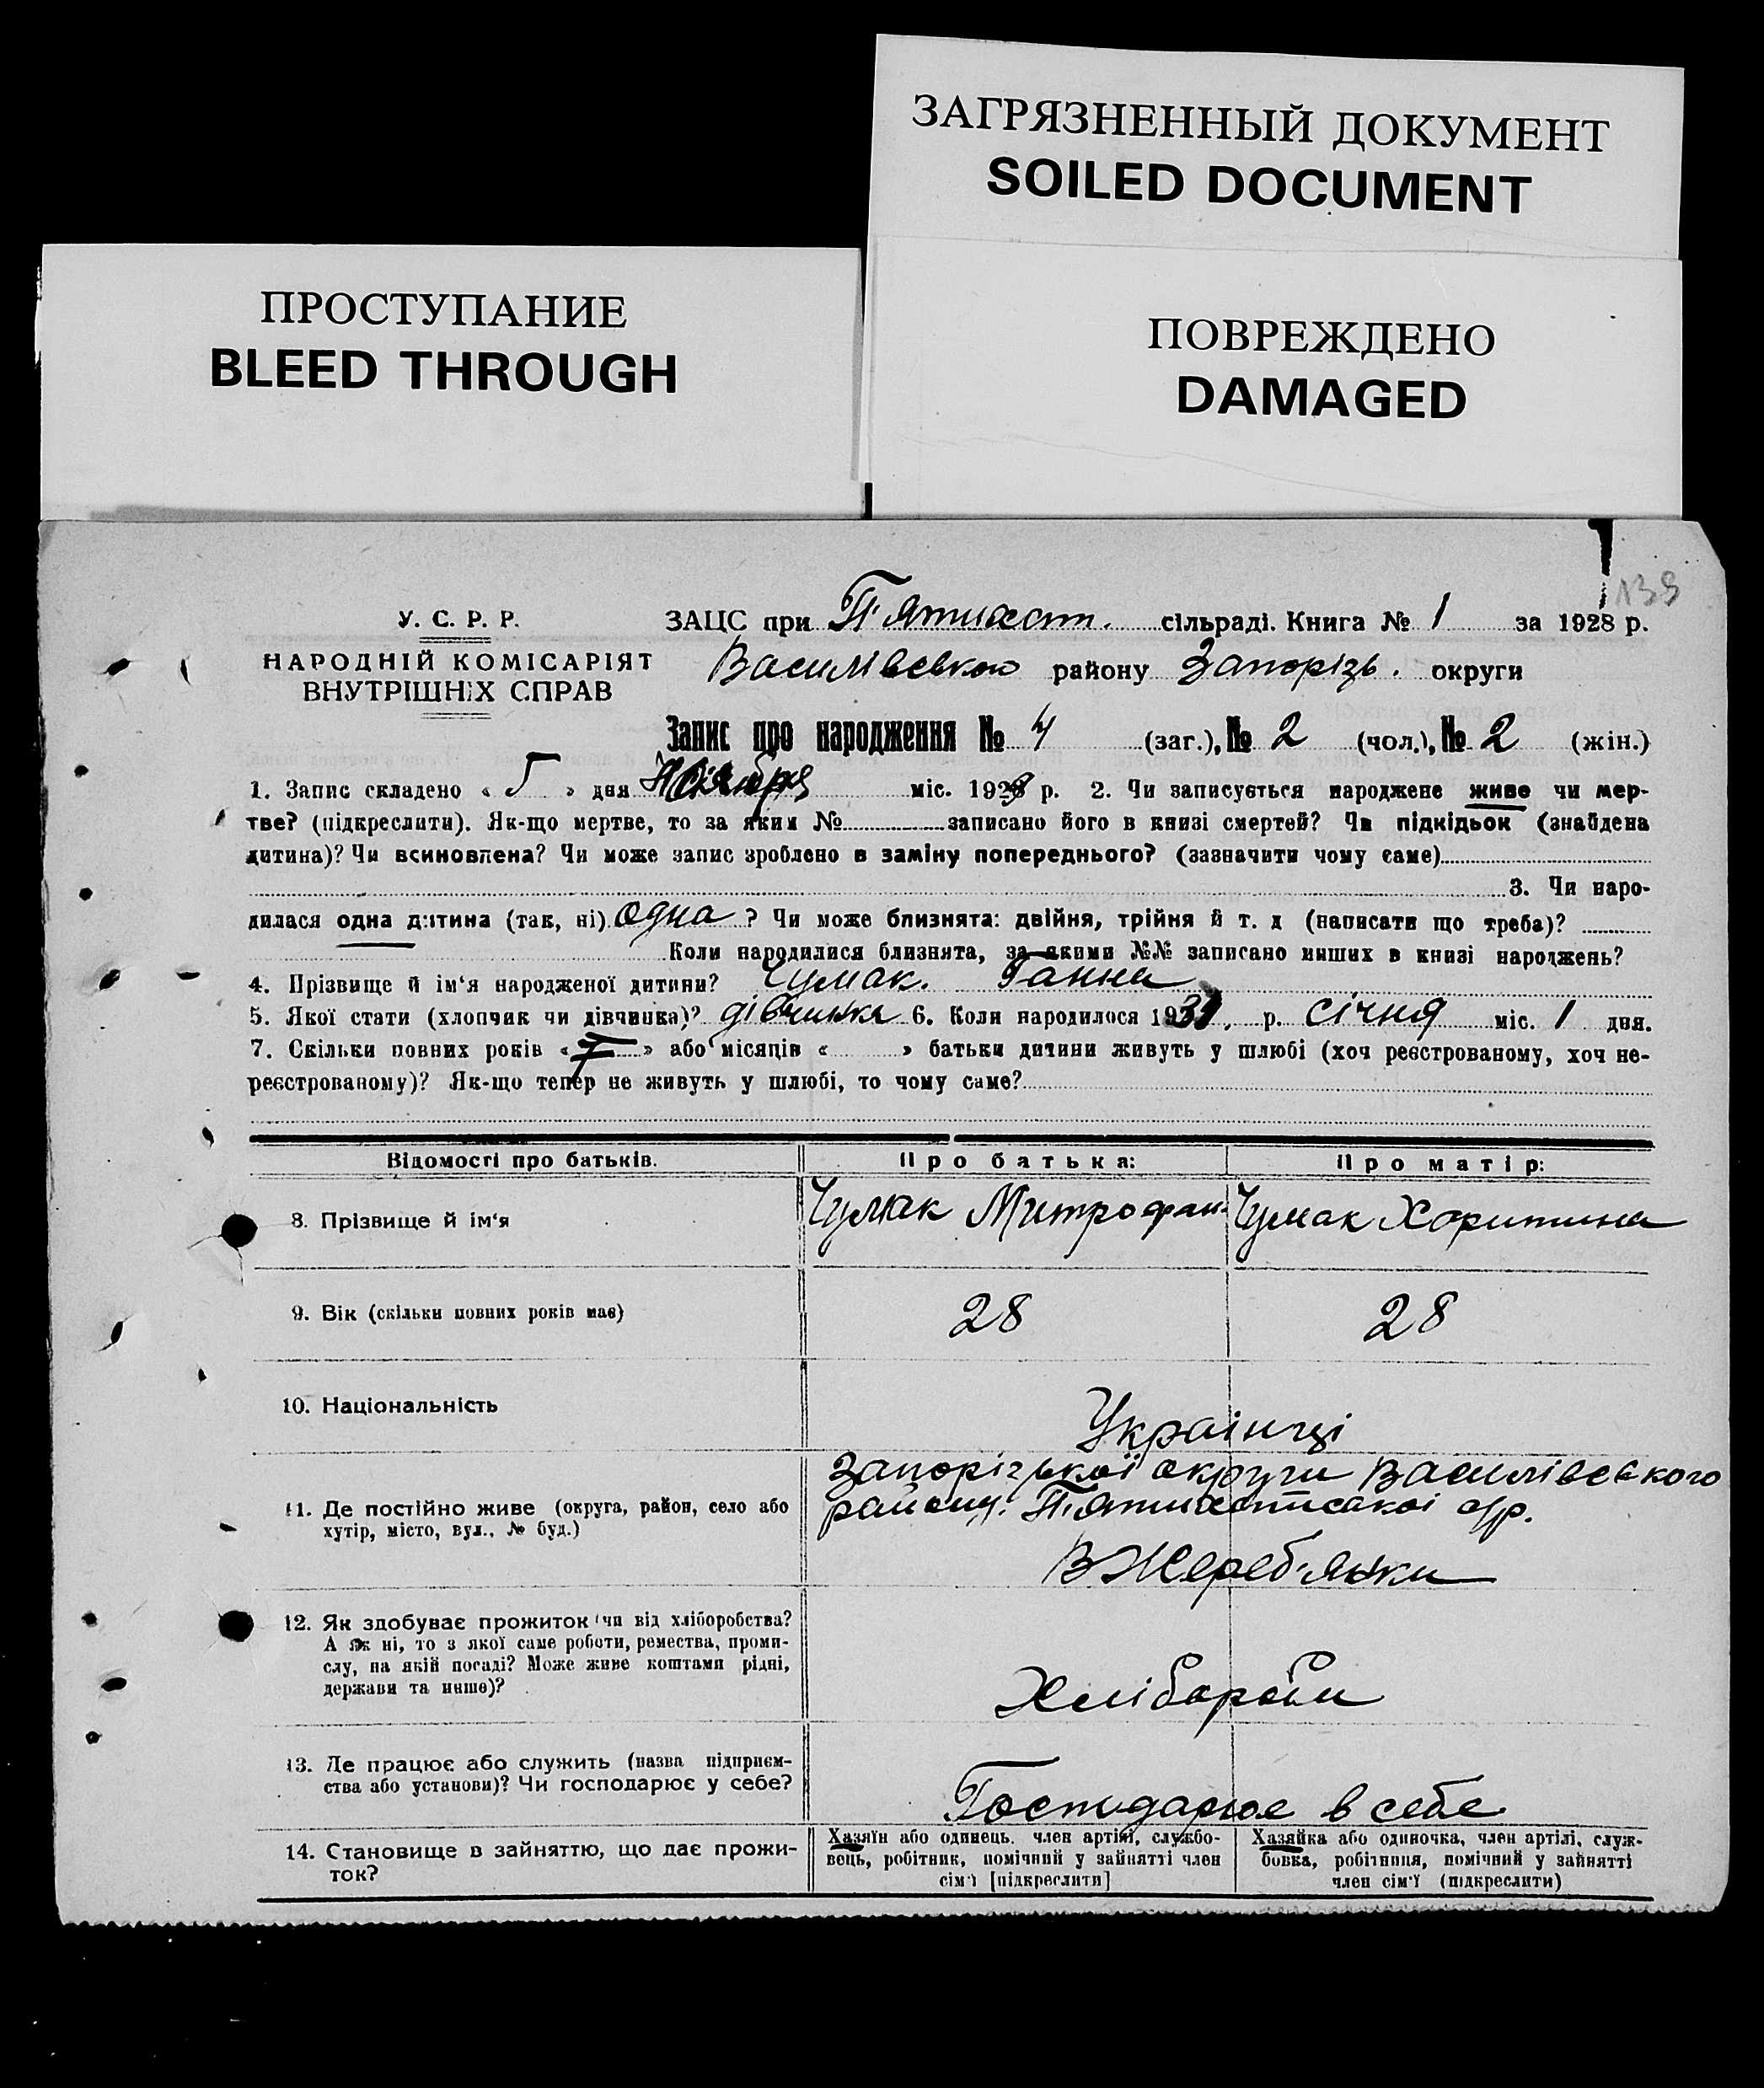 ЗАГРЯЗНЕННЫЙ ДОКУМЕНТ
SOILED DOCUMENT
ПРОСТУПАНИЕ
BLEED THROUGH
ПОВРЕЖДЕНО
DAMAGED
138
У. С. Р. Р.
НАРОДНІЙ КОМІСАРІЯТ
ВНУТРІШНІХ СПРАВ
ЗАЦС при П'ятихат. сільраді. Книга № 1 за 1928 р.
Василівського району Запорізь. округи
Запис про народження № 4 (заг.), № 2 (чол.), № 2 (жін.)
1. Запис складено « 5 » дня міс. 192 р. 2. Чи записується народжене живе чи мер-
тве? (підкреслити). Як-що мертве, то за яким № записано його в книзі смертей? Чи підкідьок (знайдена
дитина)? Чи всиновлена? Чи може запис зроблено в заміну попереднього? (зазначити чому саме)
3. Чи наро-
дилася одна дитина (так, ні) одна ? Чи може близнята: двійня, трійня й т. д (написати що треба)?
Коли народилися близнята, за якими №№ записано инших в книзі народжень?
4. Прізвище й ім'я народженої дитини? Чумак. Ганна
5. Якої стати (хлопчик чи дівчинка)? дівчинка 6. Коли народилося 1931. р. січня міс. 1 дня.
7. Скільки повних років « 7 » або місяців « » батьки дитини живуть у шлюбі (хоч реєстрованому, хоч не-
реєстрованому)? Як-що тепер не живуть у шлюбі, то чому саме?
Відомості про батьків. Про батька: Про матір:
8. Прізвище й ім'я Чумак Митрофан Чумак Харитина
9. Вік (скільки повних років має) 28 28
10. Національність Українці
11. Де постійно живе (округа, район, село або
хутір, місто, вул., № буд.)
Запорізької округи Василівського
району. П'ятихатської с/р.
В Жереб'янки
12. Як здобуває прожиток (чи від хліборобства?
А як ні, то з якої саме роботи, ремества, проми-
слу, на якій посаді? Може живе коштами рідні,
держави та инше)?
Хлібороби
13. Де працює або служить (назва підприєм-
ства або установи)? Чи господарює у себе?
Господарює в себе
14. Становище в зайняттю, що дає прожи-
ток?
Хазяїн або одинець, член артілі, службо-
вець, робітник, помічний у зайнятті член
сім'ї [підкреслити]
Хазяйка або одиночка, член артілі, служ-
бовка, робітниця, помічний у зайнятті
член сім'ї (підкреслити)